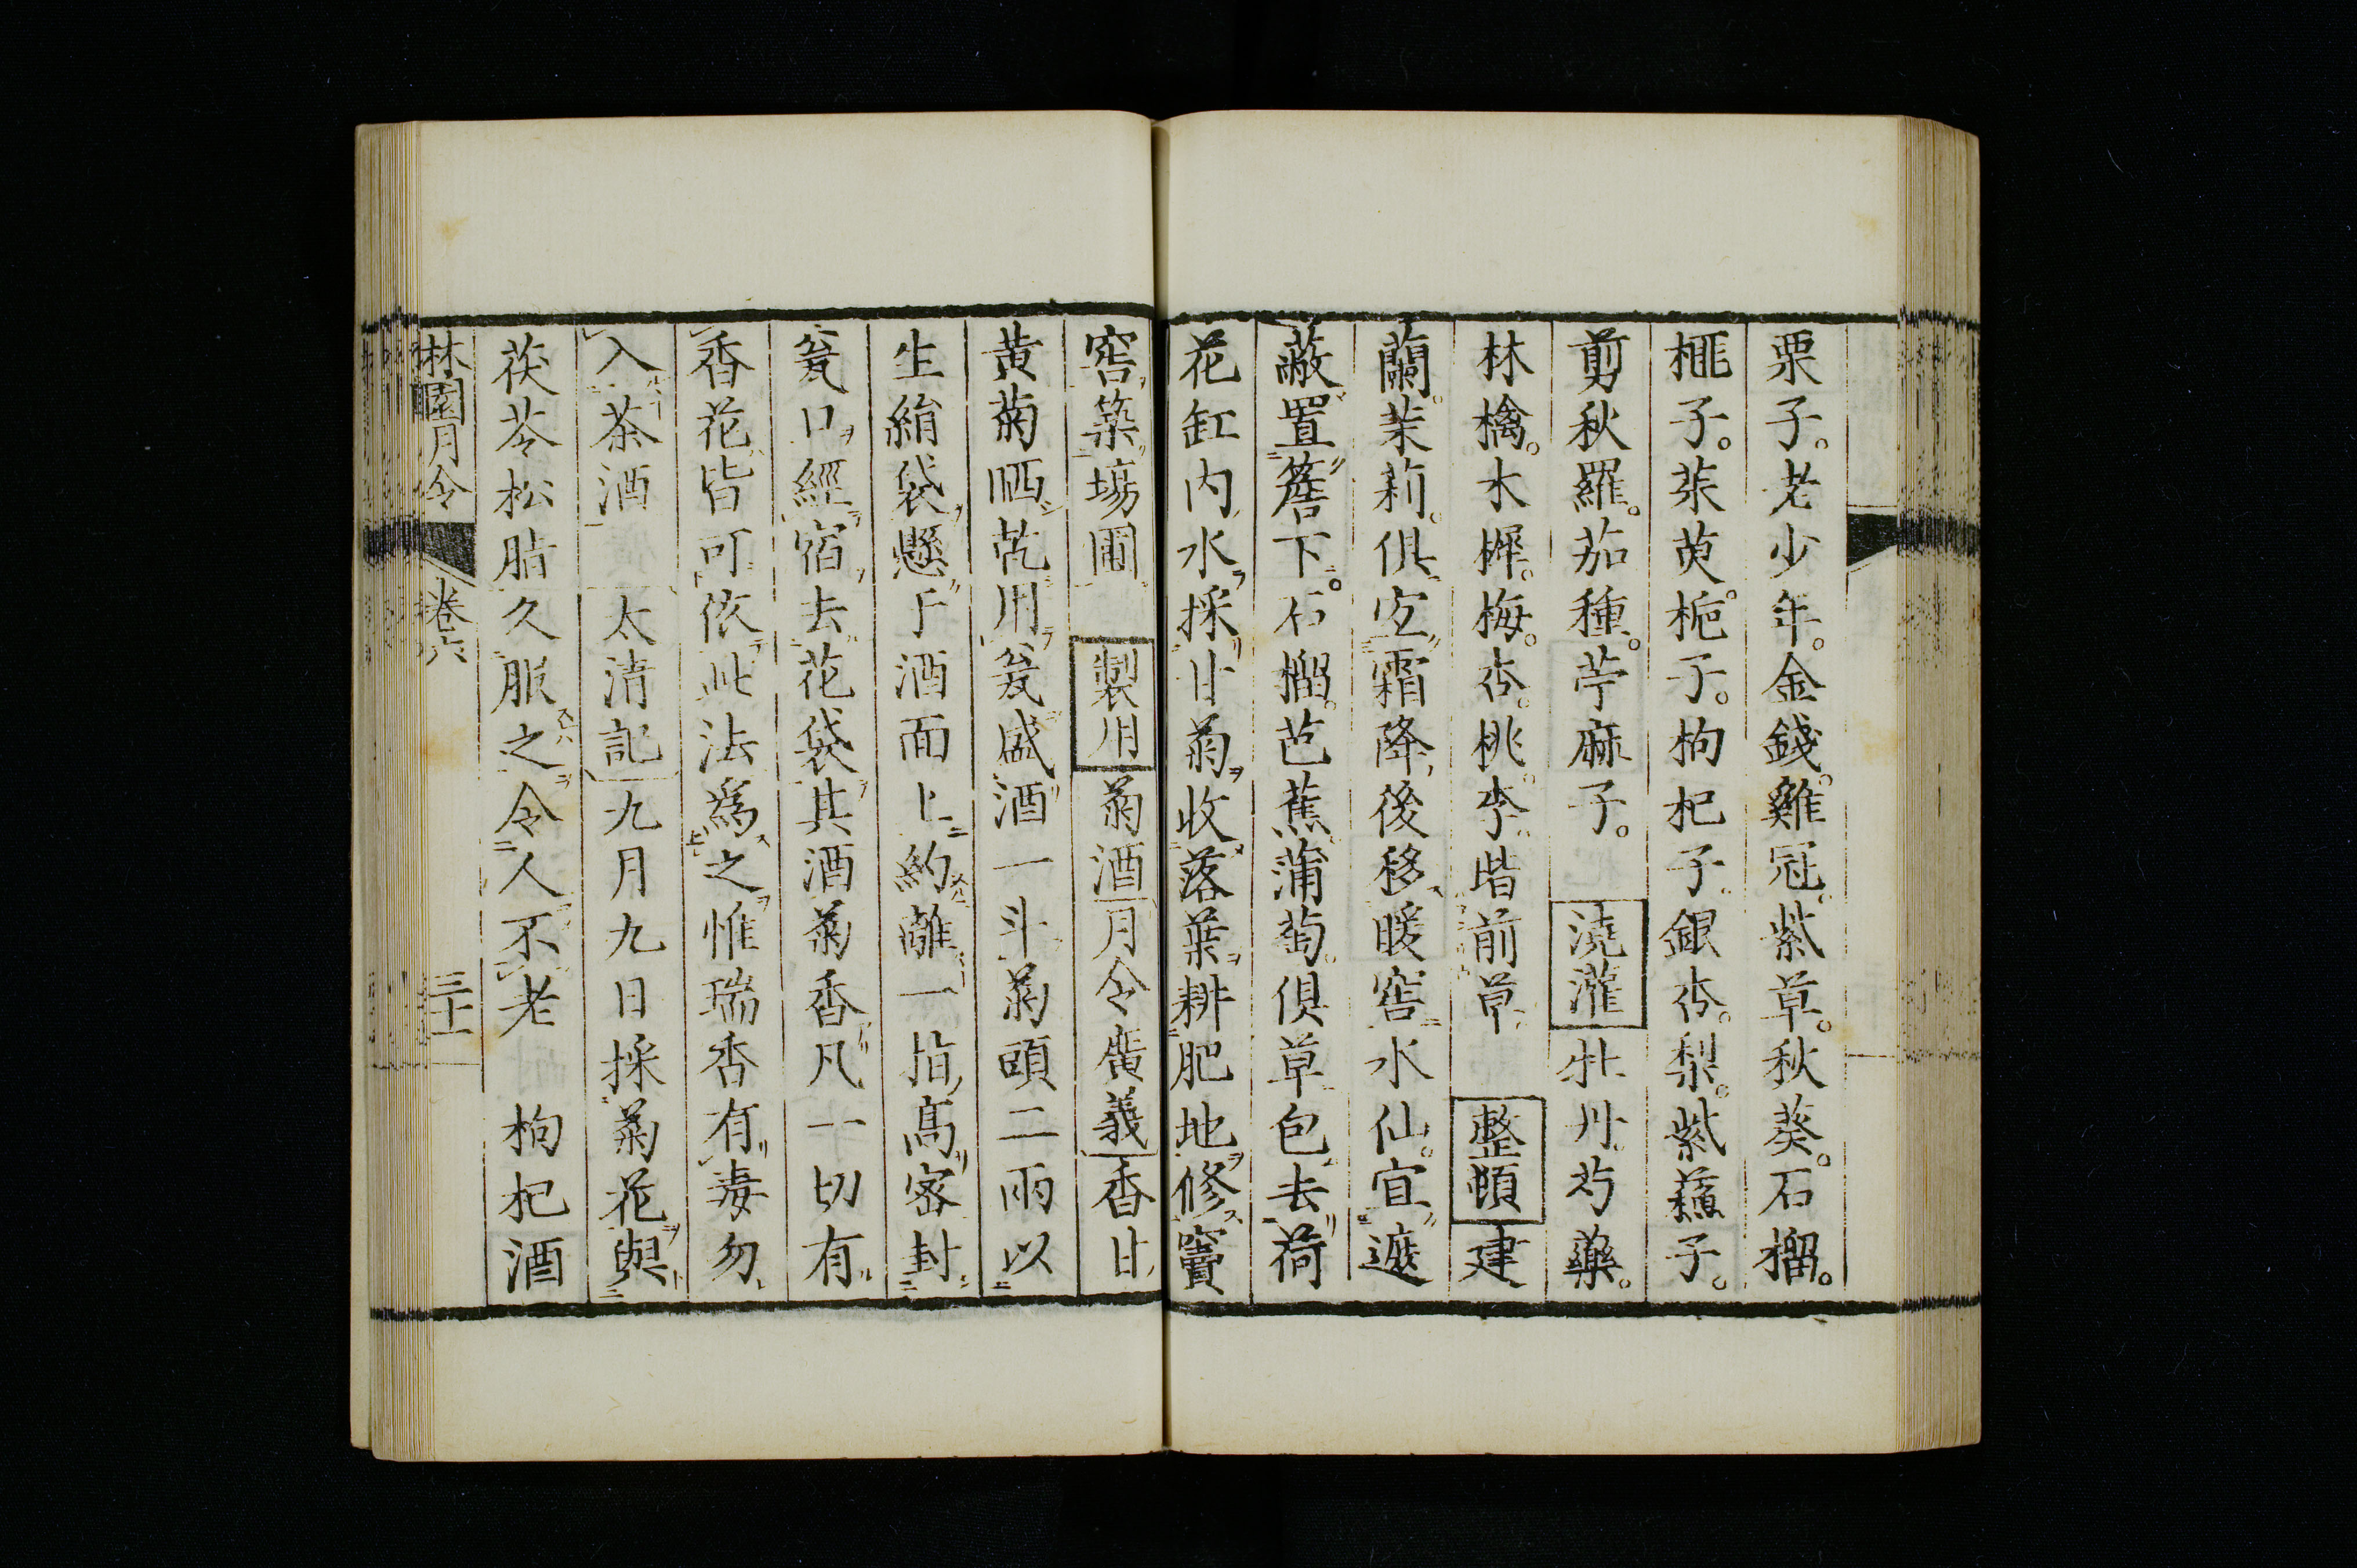 栗子。老少年。金錢。雞冠。紫草。秋葵。石榴。
榧子。茱萸。梔子。枸杞子。銀杏。梨。紫蘓子。
剪秋羅。茄種。苧麻子。澆灌牡丹。芍藥。
林檎。木樨。梅。杏。桃。李。皆前草。整頓建
蘭。茉莉。俱宜霜降後移暖窖。水仙。宜遮
蔽置簷下。石榴。芭蕉。蒲萄。俱草包。去荷
花缸内水採甘菊收落葉耕肥地修竇
窖築塲圃製用菊酒月令廣義香甘
黄菊晒乾用瓮盛酒一斗菊頭二兩以
生絹袋懸于酒面上約離一指高密封
瓮口經宿去花袋其酒菊香凡一切有
香花皆可依此法爲之惟瑞香有毒勿
入茶酒太清記九月九日採菊花與
茯苓松脂久服之令人不老枸杞酒
林園月令 卷六 三十一